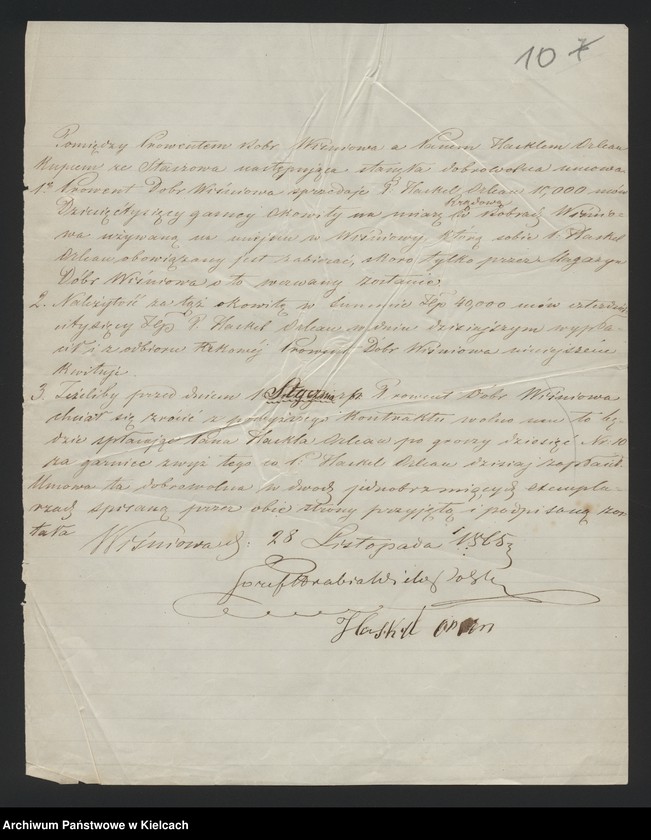 10
Pomiędzy Prowentem Dobr Wiśniowa a Panem Hasklem Orlean
Kupcem ze Staszowa następująca stanęła dobrowolna umowa
1º Prowent Dobr Wiśniowa sprzedaje P. Haskel Orlean 10,000 mów
Dziesięć tysięcy garncy okowity na miarę rządową w Dobrach Wiśnio-
wa używaną na miejscu w Wiśniowy, którą sobie P. Haskel
Orlean obowiązany jest zabierać, skoro tylko przez Magazyn
Dóbr Wiśniowa o to wezwany zostanie
2. Należytość za tęż okowitę w Summie Złp 40,000 mów czterdzieści
tysięcy Złp P. Haskel Orlean w dniu dzisiejszym wypła-
cił i z odbioru takowéj Prowent Dóbr Wiśniowa niniejszem
kwituje.
3. Jeżeliby przed dniem 1 Stycznia Prowent Dóbr Wiśniowa
chciał się zrócić z powyższego Kontraktu wolno mu to bę-
dzie spłacając Pana Haskla Orlean po groszy dziesięć No 10
za garniec zwyż tego co P. Haskel Orlean dzisiaj zapłacił.
Umowa ta dobrowolna w dwóch jednobrzmiących exempla-
rzach spisaną przez obie strony przyjętą i podpisaną zos-
tała
Wiśniowa d. 28 Listopada 1868
Józef Hrabia Wielopolski
Haskel